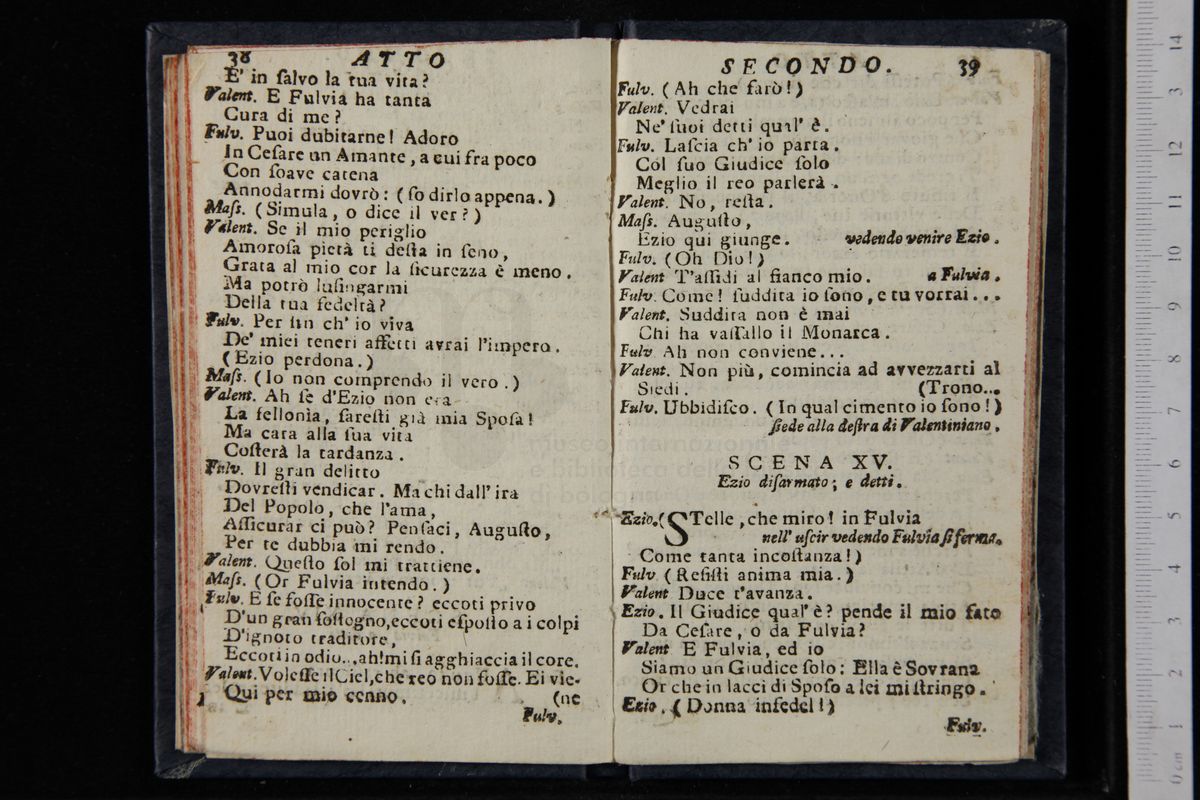 38 ATTO
E' in ſalvo la tua vita?
Valent. E Fulvia ha tanta
Cura di me?
Fulv. Puoi dubitarne! Adoro
In Ceſare un Amante, a cui fra poco
Con ſoave catena
Annodarmi dovrò: (ſo dirlo appena.)
Maſs. (Simula, o dice il ver?)
Valent. Se il mio periglio
Amoroſa pietà ti deſta in ſeno,
Grata al mio cor la ſicurezza è meno.
Ma potrò luſingarmi
Della tua fedeltà?
Fulv. Per ſin ch' io viva
De' miei teneri affetti avrai l'impero.
(Ezio perdona.)
Maſs. (Io non comprendo il vero.)
Valent. Ah ſe d'Ezio non era
La fellonia, ſareſti già mia Spoſa!
Ma cara alla ſua vita
Coſterà la tardanza.
Fulv. Il gran delitto
Dovreſti vendicar. Ma chi dall' ira
Del Popolo, che l'ama,
Aſſicurar ci può? Penſaci, Auguſto,
Per te dubbia mi rendo.
Valent. Queſto ſol mi trattiene.
Maſs. (Or Fulvia intendo.)
Fulv. E ſe foſſe innocente? eccoti privo
D'un gran ſoſtegno, eccoti eſpoſto a i colpi
D'ignoto traditore,
Eccoti in odio...ah! mi ſi agghiaccia il core.
Valent. Voleſſe il Ciel, che reo non foſſe. Ei vie-
Qui per mio cenno. (ne
Fulv.
SECONDO. 39
Fulv. (Ah che farò!)
Valent. Vedrai
Ne' ſuoi detti qual' è.
Fulv. Laſcia ch' io parta.
Col ſuo Giudice ſolo
Meglio il reo parlerà.
Valent. No, reſta.
Maſs. Auguſto,
Ezio qui giunge. vedendo venire Ezio.
Fulv. (Oh Dio!)
Valent T'aſſidi al fianco mio. a Fulvia.
Fulv. Come! ſuddita io ſono, e tu vorrai...
Valent. Suddita non è mai
Chi ha vaſſallo il Monarca.
Fulv Ah non conviene...
Valent. Non più, comincia ad avvezzarti al
Siedi. (Trono...
Fulv. Ubbidiſco. (In qual cimento io ſono!)
ſiede alla deſtra di Valentiniano.
SCENA XV.
Ezio diſarmato; e detti.
Ezio. (STelle, che miro! in Fulvia
nell' uſcir vedendo Fulvia ſi ferma.
Come tanta incoſtanza!)
Fulv (Reſiſti anima mia.)
Valent Duce t'avanza.
Ezio. Il Giudice qual' è? pende il mio fato
Da Ceſare, o da Fulvia?
Valent E Fulvia, ed io
Siamo un Giudice ſolo: Ella è Sovrana
Or che in lacci di Spoſo a lei mi ſtringo.
Ezio. (Donna infedel!)
Fulv.